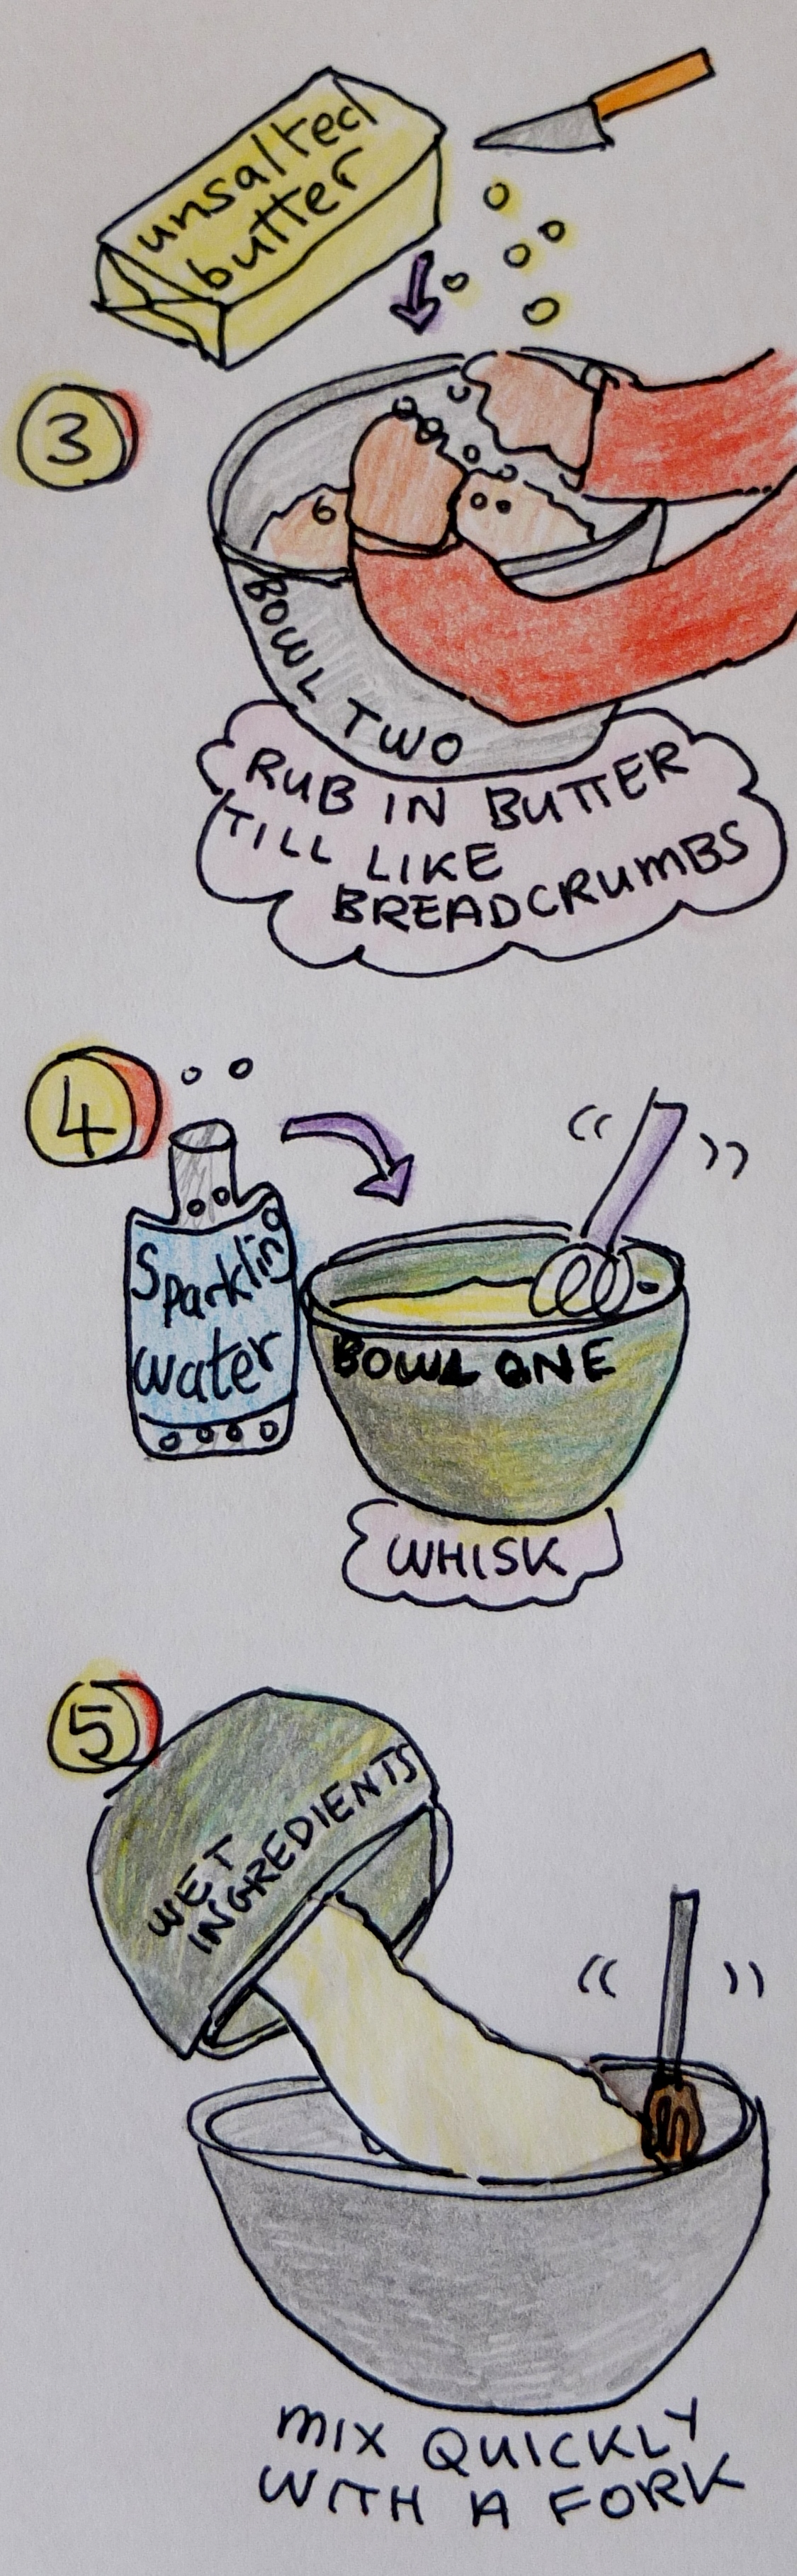 unsalted
butter
3
BOWL TWO
RUB IN BUTTER
TILL LIKE
BREADCRUMBS
4
Sparklin
water
BOWL ONE
WHISK
5
WET
INGREDIENTS
MIX QUICKLY
WITH A FORK